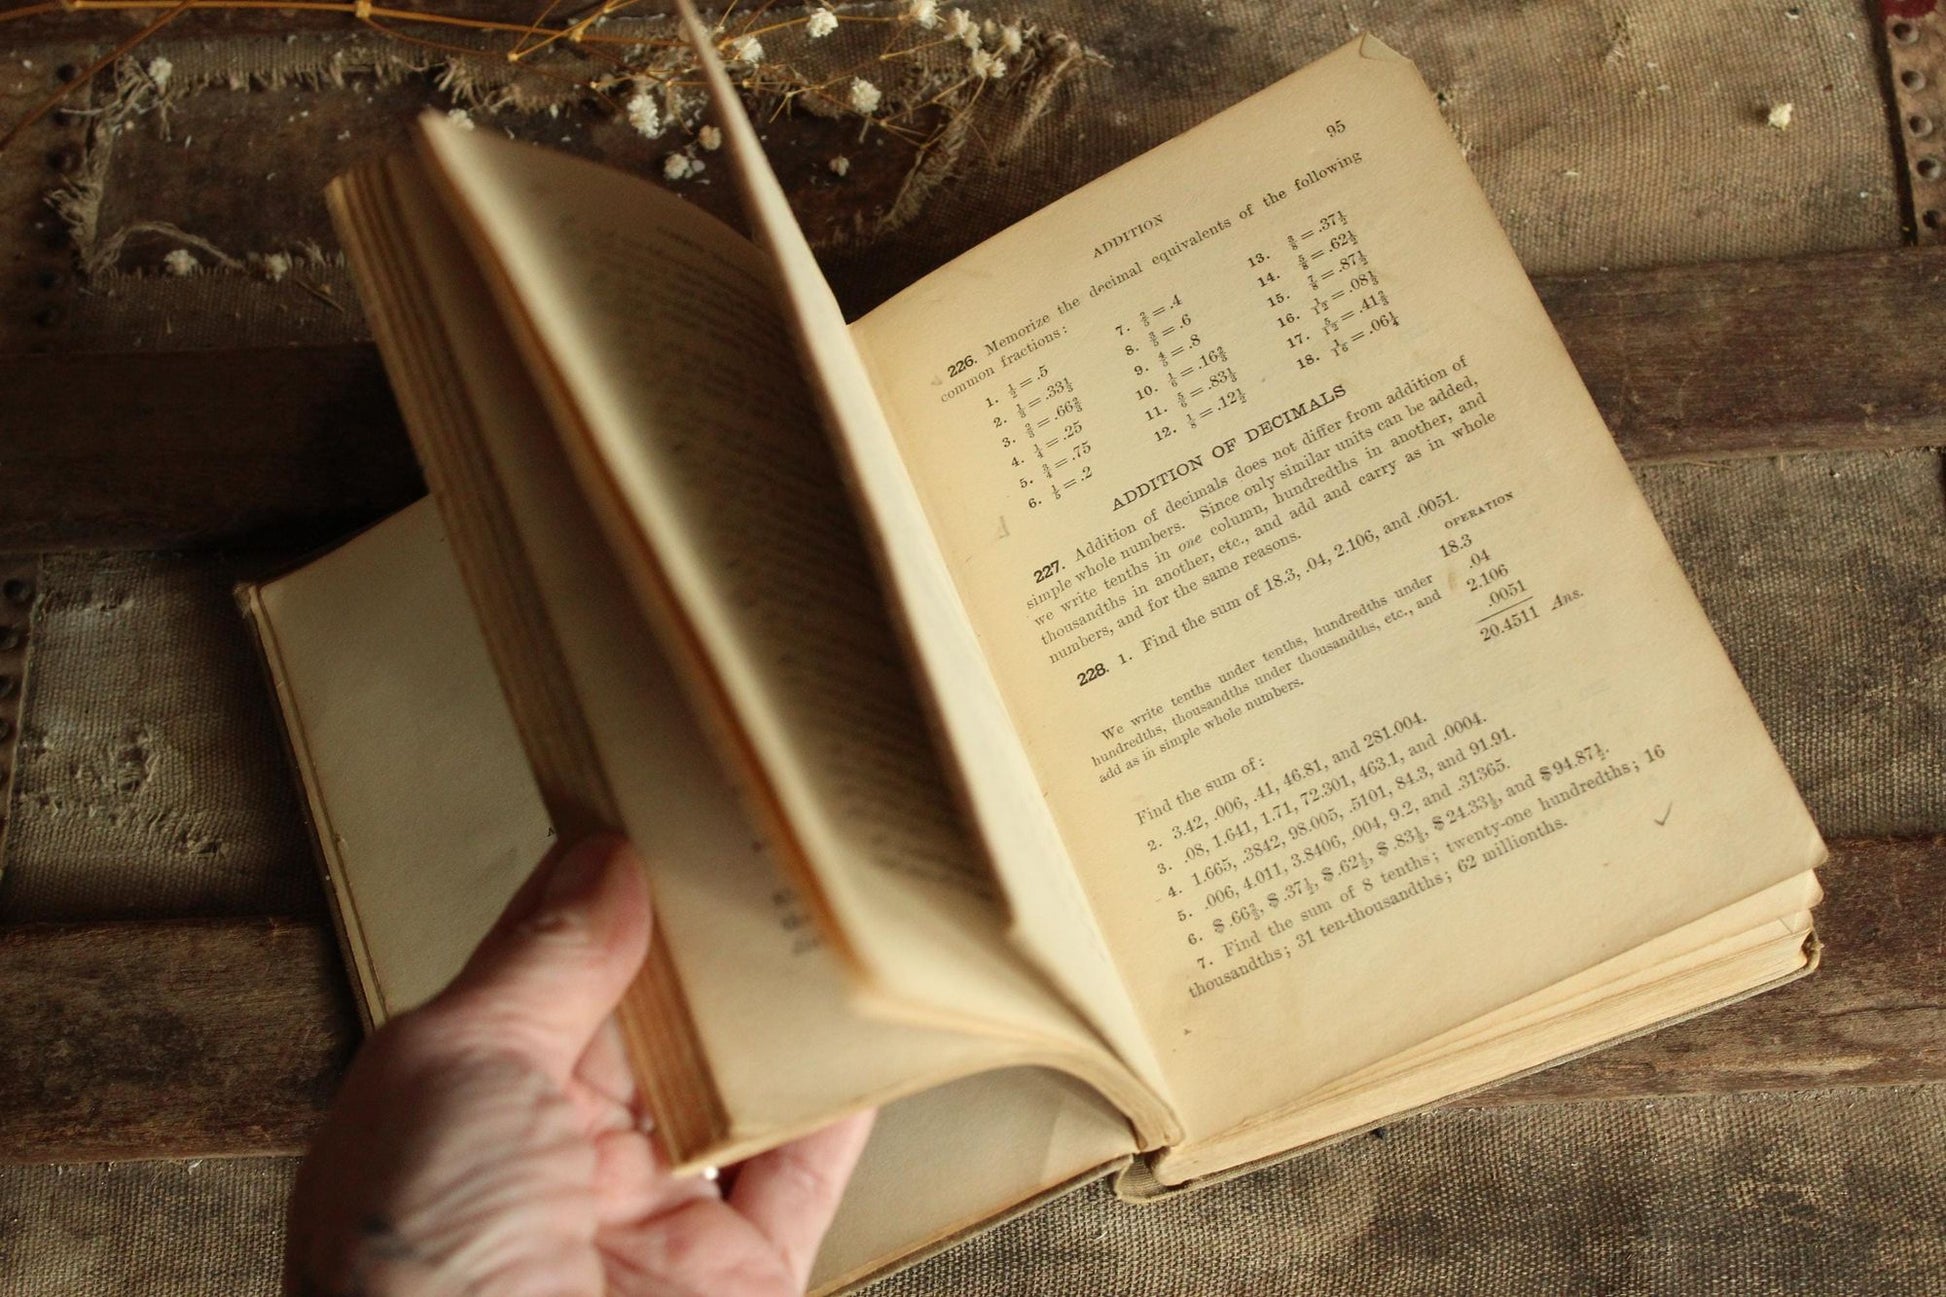 95
ADDITION
226. Memorize the decimal equivalents of the following
common fractions:
1. ½ = .5
2. ⅓ = .33⅓
3. ⅔ = .66⅔
4. ¼ = .25
5. ¾ = .75
6. ⅕ = .2
7. ⅖ = .4
8. ⅗ = .6
9. ⅘ = .8
10. ⅙ = .16⅔
11. ⅚ = .83⅓
12. ⅛ = .12½
13. ⅜ = .37½
14. ⅝ = .62½
15. ⅞ = .87½
16. 1/12 = .08⅓
17. 5/12 = .41⅔
18. 1/16 = .06¼
ADDITION OF DECIMALS
227. Addition of decimals does not differ from addition of
simple whole numbers. Since only similar units can be added,
we write tenths in one column, hundredths in another, and
thousandths in another, etc., and add and carry as in whole
numbers, and for the same reasons.
228. 1. Find the sum of 18.3, .04, 2.106, and .0051.
OPERATION
18.3
.04
2.106
.0051
20.4511 Ans.
We write tenths under tenths, hundredths under
hundredths, thousandths under thousandths, etc., and
add as in simple whole numbers.
Find the sum of:
2. 3.42, .006, .41, 46.81, and 281.004.
3. .08, 1.641, 1.71, 72.301, 463.1, and .0004.
4. 1.665, .3842, 98.005, .5101, 84.3, and 91.91.
5. .006, 4.011, 3.8406, .004, 9.2, and .31365.
6. $.66⅔, $.37½, $.62½, $.83⅓, $24.33⅓, and $94.87½.
7. Find the sum of 8 tenths; twenty-one hundredths; 16
thousandths; 31 ten-thousandths; 62 millionths.